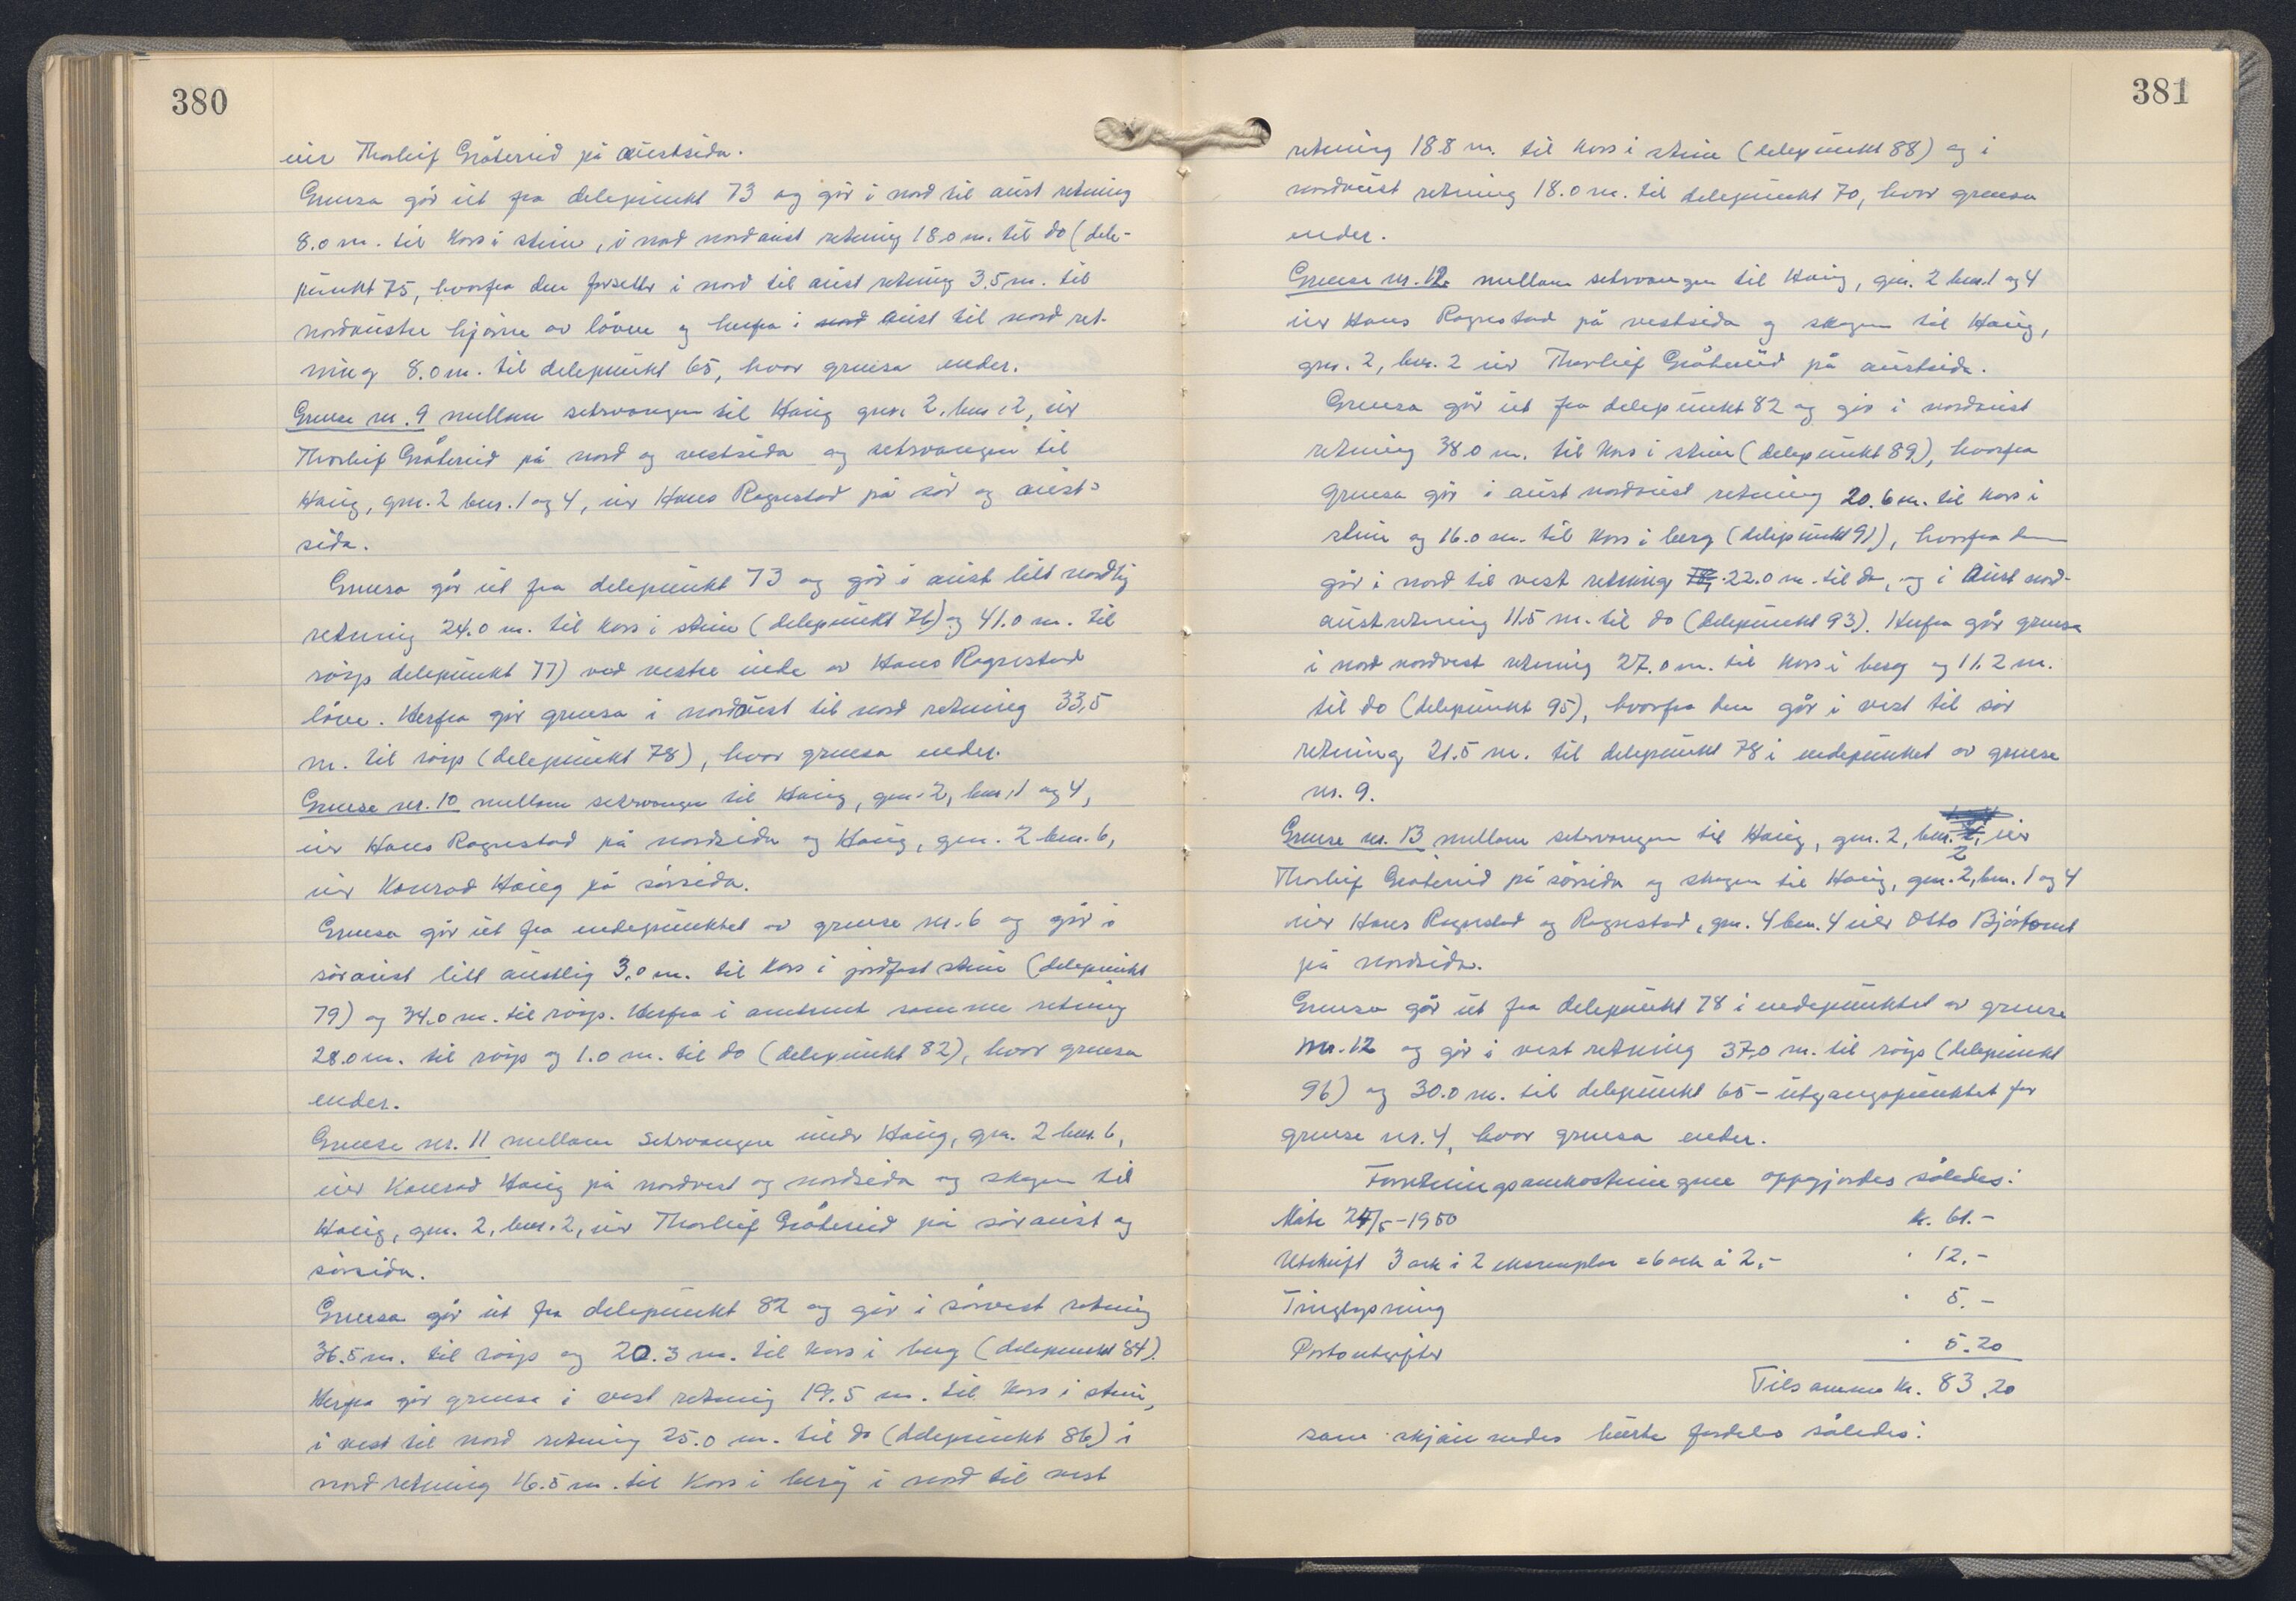 380
eier Thorleif Gråterud på austsida.
Grensa går ut fra delepunkt 73 og går i nord til aust retning
8.0 m. til kors i stein, i nord nordaust retning 18.0 m. til do (dele-
punkt 75, hvorfra den forsetter i nord til aust retning 3.5 m. til
nordaustre hjörne av löven og herfra i nord aust til nord ret-
ning 8.0 m. til delepunkt 65, hvor grensa ender.
Grense nr. 9 mellom setervangen til Haug gnr. 2. bnr. 2, eier
Thorleif Gråterud på nord og vestsida og setrvangen til
Haug, gnr. 2 bnr. 1 og 4, eier Hans Ragnestad på sör og aust-
sida.
Grensa går ut fra delepunkt 73 og går i aust litt nordlig
retning 24.0 m. til kors i stein (delepunkt 76) og 41.0 m. til
röys delepunkt 77) ved vestre ende av Hans Ragnestad
löve. Herfra går grensa i nordaust til nord retning 33,5
m. til röys (delepunkt 78), hvor grensa ender.
Grense nr. 10 mellom setrvangen til Haug, gnr. 2, bnr. 1 og 4,
eier Hans Ragnestad på nordsida og Haug, gnr. 2 bnr. 6,
eier Konrad Haug på sörsida.
Grensa går ut fra endepunktet av grense nr. 6 og går i
söraust litt austlig 3.0 m. til kors i jordfast stein (delepunkt
79) og 34.0 m. til röys. Herfra i omtrent samme retning
28.0 m. til röys og 1.0 m. til do (delepunkt 82), hvor grensa
ender.
Grense nr. 11 mellom Setrvangen under Haug, gnr. 2 bnr. 6,
eier Konrad Haug på nordvest og nordsida og skogen til
Haug, gnr. 2, bnr. 2, eier Thorleif Gråterud på söraust og
sörsida.
Grensa går ut fra delepunkt 82 og går i sörvest retning
36.5 m. til röys og 20.3 m. til kors i berg (delepunkt 84).
Herfra går grensa i vest retning 19.5 m. til kors i stein,
i vest til nord retning 25.0 m. til do (delepunkt 86) i
nord retning 16.5 m. til kors i berg i nord til vest
381
retning 18.8 m. til kors i stein (delepunkt 88) og i
nordaust retning 18.0 m. til delepunkt 70, hvor grensa
ender.
Grense nr. 12. mellom setrvangen til Haug, gnr. 2 bnr. 1 og 4
eier Hans Ragnestad på vestsida og skogen til Haug,
gnr. 2, bnr. 2 eier Thorleif Gråterud på austsida.
Grensa går ut fra delepunkt 82 og går i nordaust
retning 38.0 m. til kors i stein (delepunkt 89), hvorfra
grensa går i aust nordaust retning 20.6 m. til kors i
stein og 16.0 m. til kors i berg (delepunkt 91), hvorfra den
går i nord til vest retning 22.0 m. til do, og i aust nord-
aust retning 11.5 m. til do (delepunkt 93). Herfra går grensa
i nord nordvest retning 27.0 m. til kors i berg og 11.2 m.
til do (delepunkt 95), hvorfra den går i vest til sör
retning 21.5 m. til delepunkt 78 i endepunktet av grense
nr. 9.
Grense nr. 13 mellom setervangen til Haug, gnr. 2, bnr. 2 eier
Thorleif Gråterud på sörsida og skogen til Haug, gnr. 2, bnr. 1 og 4
eier Hans Ragnestad og Ragnestad, gnr. 4 bnr. 4 eier Otto Björtomt
på nordsida.
Grensa går ut fra delepunkt 78 i endepunktet av grense
nr. 12 og går i vest retning 37.0 m. til röys (delepunkt
96) og 30.0 m. til delepunkt 65 - utgangspunktet for
grense nr. 4, hvor grensa ender.
Forretningsomkostningene oppgjordes således:
Möte 24/5-1950 kr. 61.-
Utskrift 3 ark i 2 eksemplar = 6 ark á 2,- " 12.-
Tinglysning " 5.-
Portoutgifter " 5.20
Tilsammen kr. 83.20
som skjönnedes burte fordeles således: